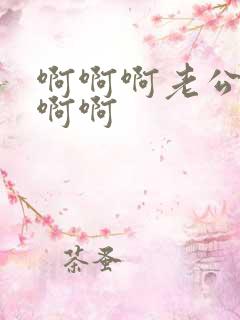 啊啊啊老公
啊啊
茶蚤